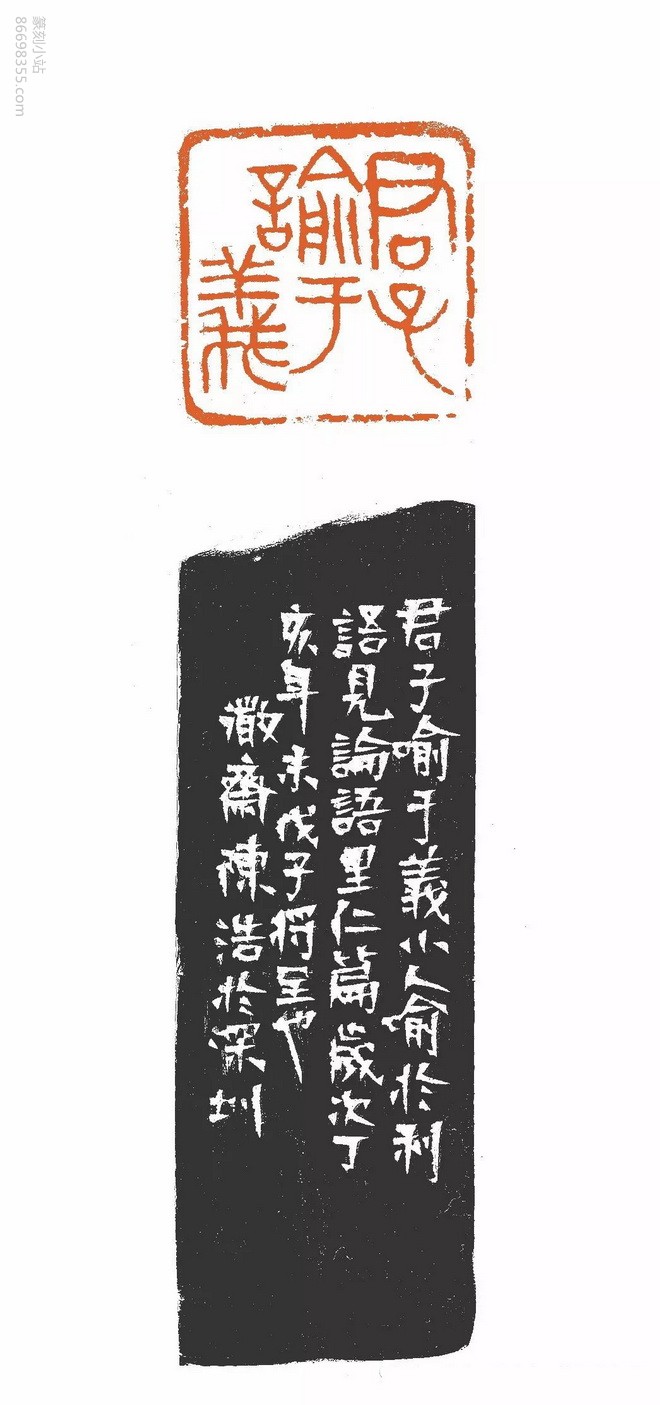 篆刻小站
86698355.com
君子
諭于
義
君子喻于義小人喻於利
語見論語里仁篇歲次丁
亥年末戊子將呈也
徽齋陳浩於深圳